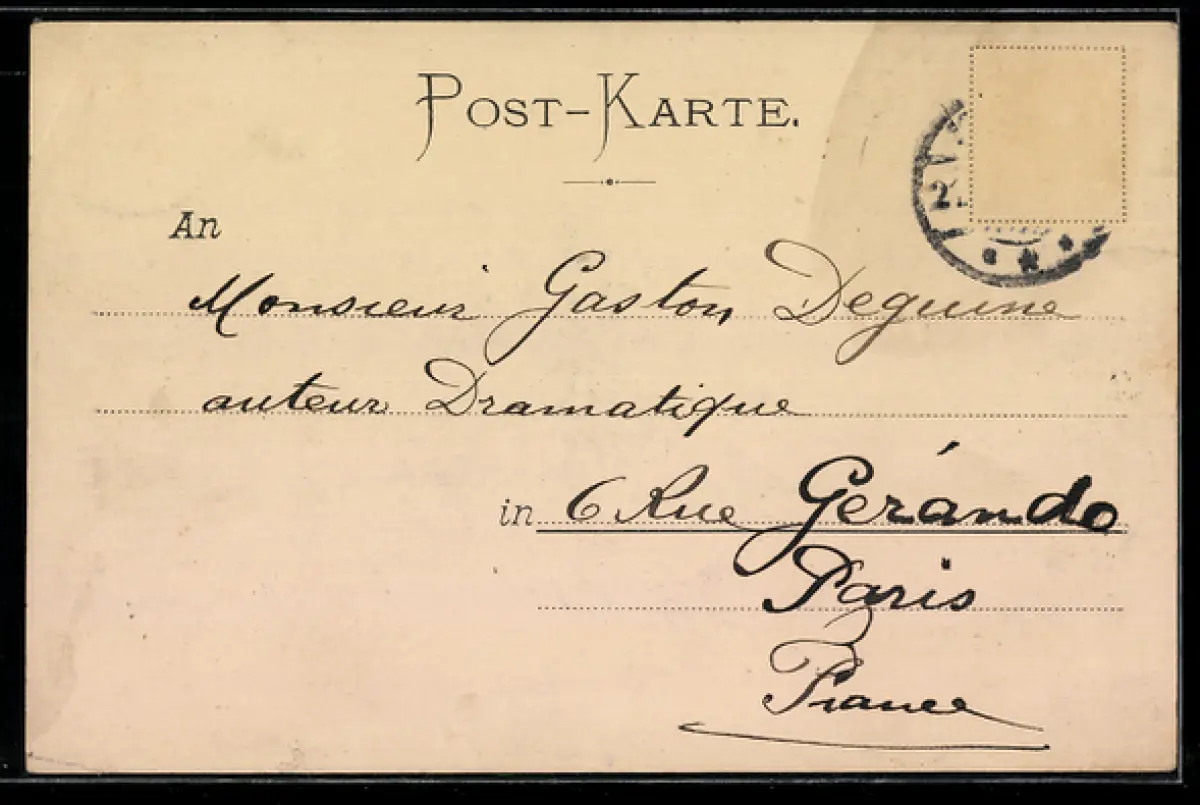 POST-KARTE.
An
Monsieur Gaston Deguine
auteur Dramatique
in 6 Rue Gérando
Paris
France